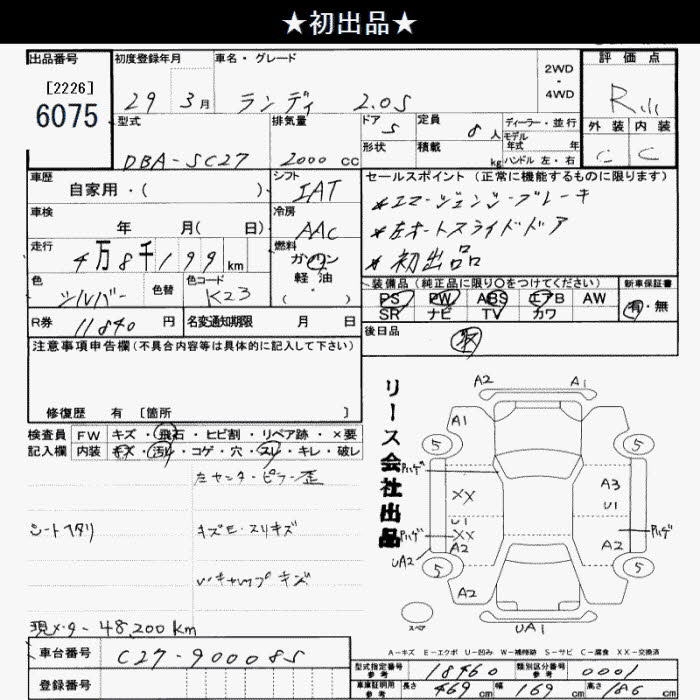 ★初出品★
出品番号
[2226]
6075
初度登録年月
29 3月
車名・グレード
ランディ 2.0S
2WD
・
4WD
評価点
R
外装 内装
C C
型式
DBA-SC27
排気量
2000 CC
ドア 5
形状
定員 8人
積載 kg
ディーラー・並行
モデル年式 年
ハンドル 左・右
車歴
自家用・( )
シフト
IAT
セールスポイント(正常に機能するものに限ります)
*エマージェンシーブレーキ
*左オートスライドドア
*初出品
車検
年 月( 日)
冷房
AAC
走行
4万8千199km
燃料
ガソリン
軽油
・( )
色
シルバー
色替
色コード
K23
装備品(純正品に限り○をつけてください)
PS PW ABS エアB AW
SR ナビ TV カワ
新車保証書
有・無
R券 11840円
名変通知期限 月 日
後日品
注意事項申告欄(不具合内容等は具体的に記入して下さい)
修復歴 有 [箇所 ]
検査員記入欄
FW キズ・飛石・ヒビ割・リペア跡・×要
内装 キズ・汚れ・コゲ・穴・スレ・キレ・破レ
左センターピラー歪
シートヘタリ
キズモ・スリキズ
リース会社出品
A2 A1
A1
5 5
Pハゲ
XX
A3
U1
U1
Pハゲ
XX
A2
A2
Pハゲ
UA2
5 5
A2
スペア
UA1
A-キズ E-エクボ U-凹み W-補修跡 S-サビ C-腐食 XX-交換済
現メーター 48,200km
車台番号
C27-900085
登録番号
型式指定番号 参考
18460
類別区分番号 参考
0001
車庫証明用 参考
長さ 469cm 幅 169cm 高さ 186cm